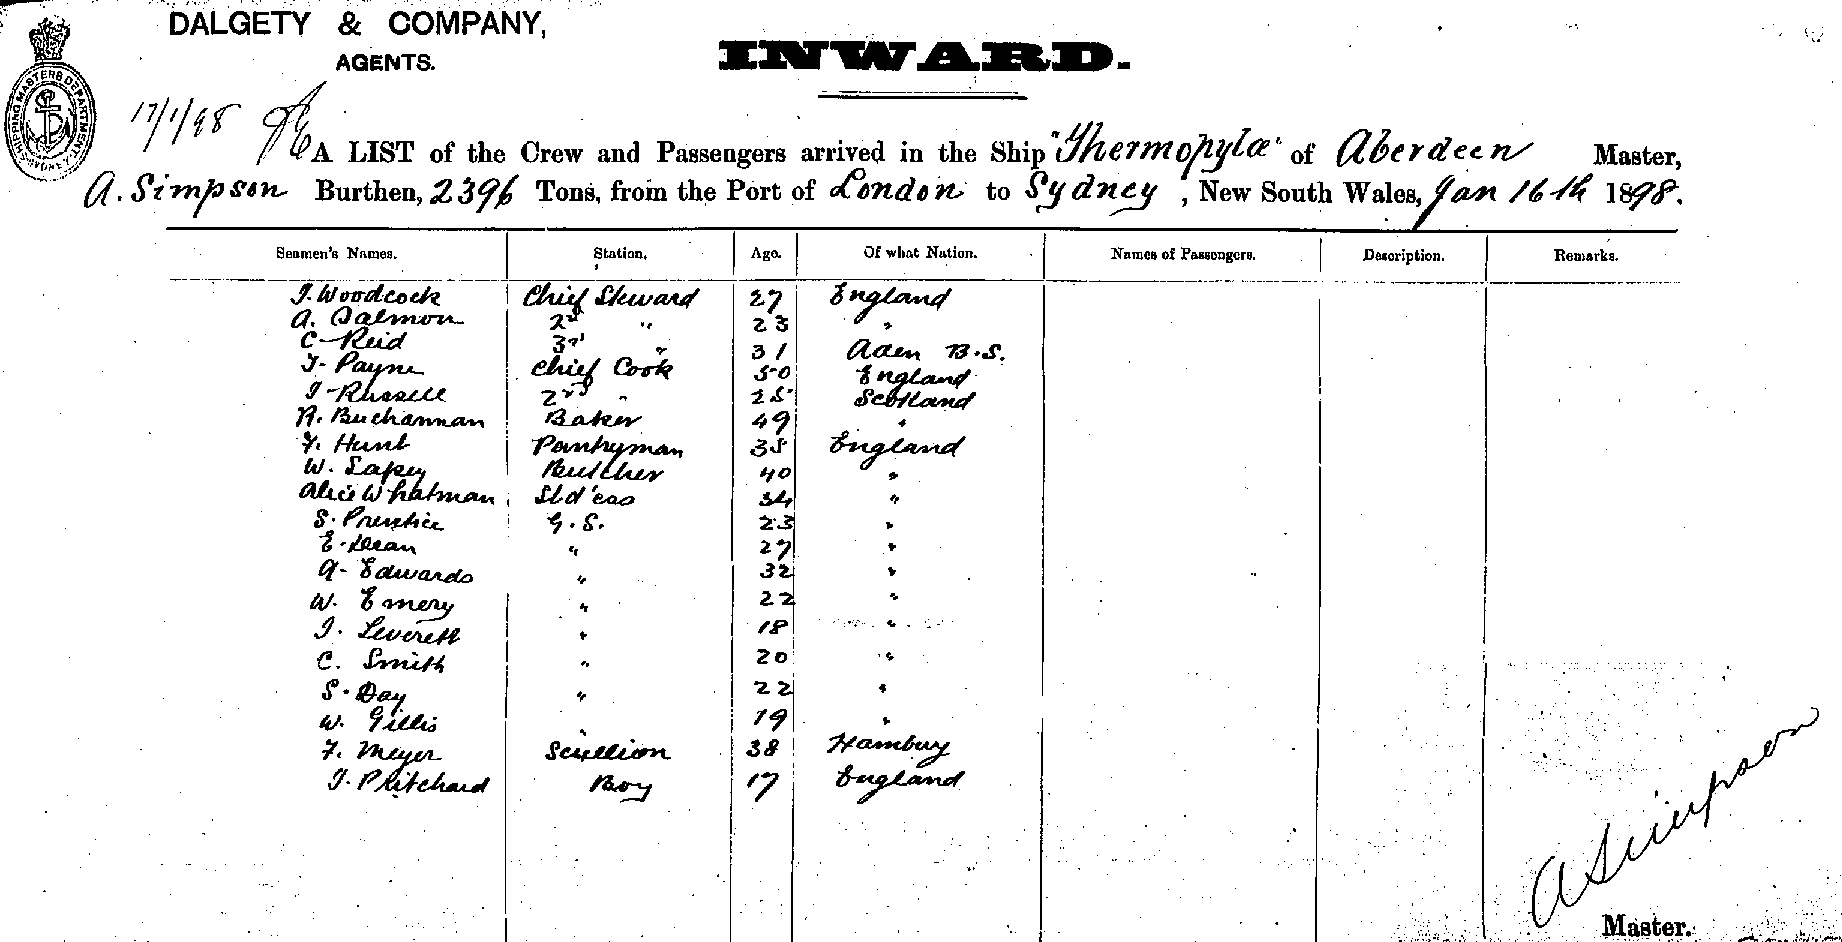 DALGETY & COMPANY,
AGENTS.
INWARD.
SHIPPING MASTERS DEPARTMENT
17/1/98
A LIST of the Crew and Passengers arrived in the Ship "Thermopylæ" of Aberdeen Master,
A. Simpson Burthen, 2396 Tons, from the Port of London to Sydney, New South Wales, Jan 16th 1898.
Seamen's Names. Station. Age. Of what Nation. Names of Passengers. Description. Remarks.
J. Woodcock Chief Steward 27 England
A. Salmon 2nd " 23 "
C Reid 3rd " 31 Aden B.S.
J. Payne Chief Cook 50 England
J Russell 2nd " 25 Scotland
R. Buchannan Baker 49 "
F. Hunt Pantryman 35 England
W. Butcher 40 "
Alice Whatman Std'ess 34 "
S. Prentice G.S. 23 "
E. Dean " 27 "
A. Edwards " 32 "
W. Emery " 22 "
J. Leverett " 18 "
C. Smith " 20 "
S. Day " 22 "
W. Gillis " 19 "
F. Meyer Scullion 38 Hamburg
J. Pritchard Boy 17 England
A Simpson
Master.